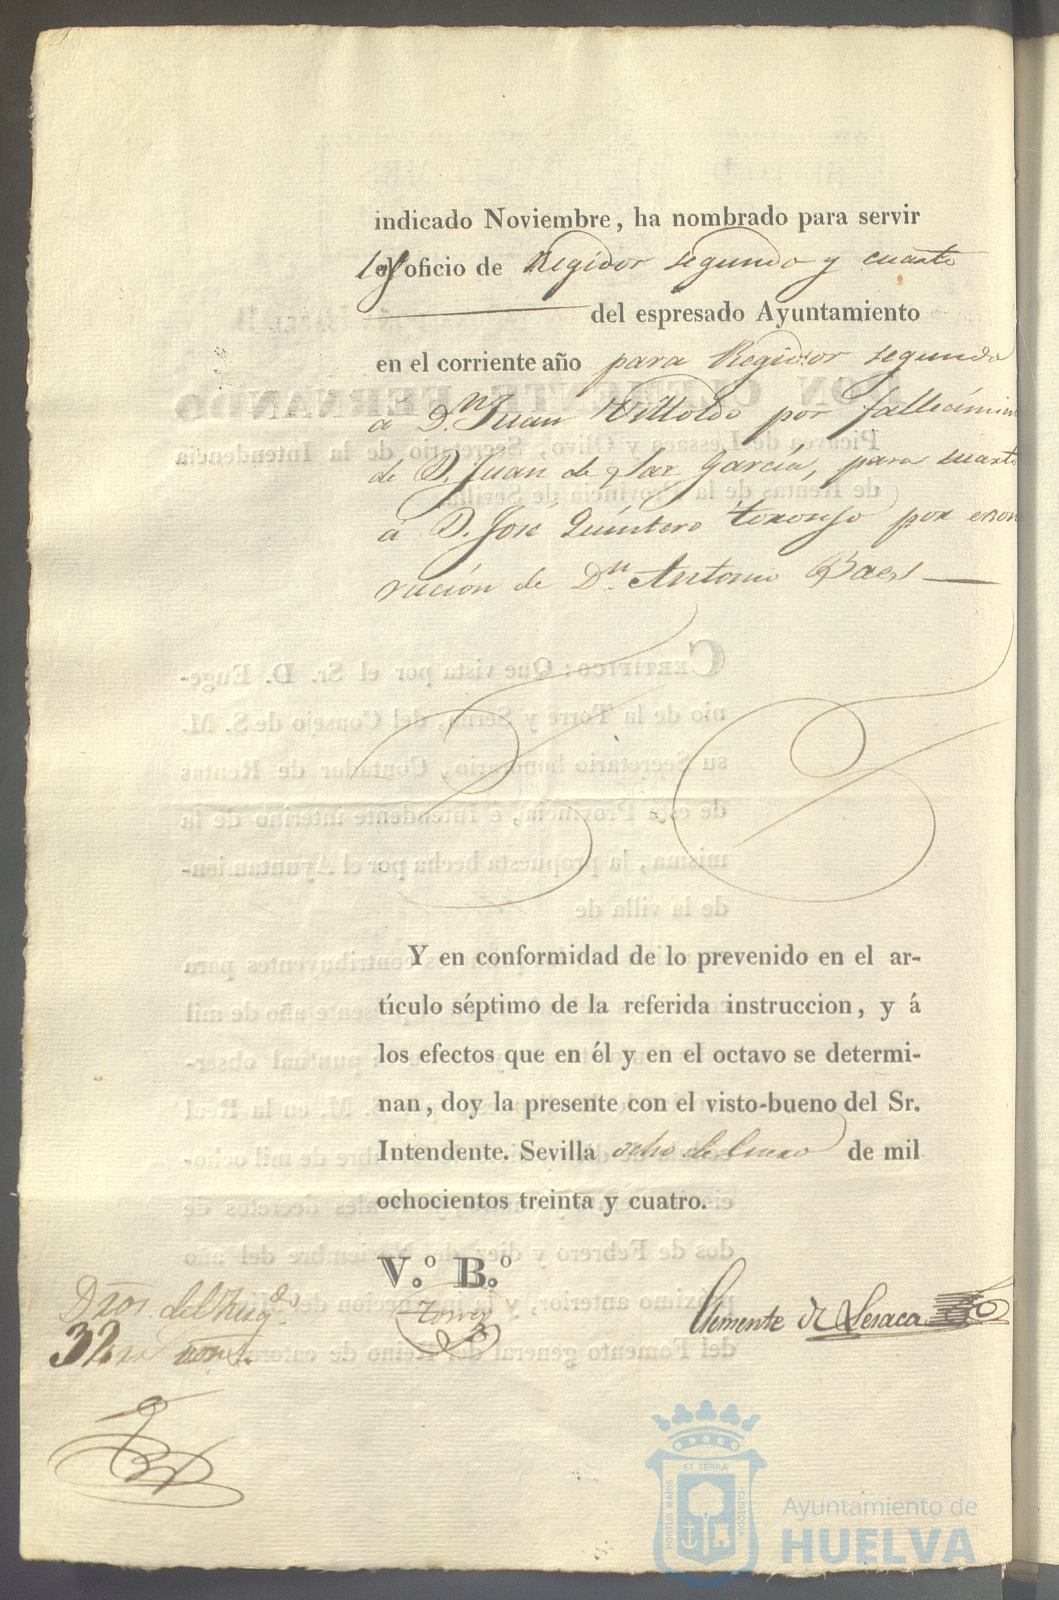 indicado Noviembre, ha nombrado para servir
oficio de Regidor segundo y cuarto
del espresado Ayuntamiento
en el corriente año para Regidor segundo
a D.n Juan Villoldo por fallecimien
de D. Juan de Paz Garcia, para cuarto
a D. José Quintero toronjo por exon
racion de D.n Antonio Baez
Y en conformidad de lo prevenido en el ar-
tículo séptimo de la referida instruccion, y á
los efectos que en él y en el octavo se determi-
nan, doy la presente con el visto-bueno del Sr.
Intendente. Sevilla ocho de Enero de mil
ochocientos treinta y cuatro.
V.º B.º
Torre
Clemente de Lesaca
Dros. del
32
PORTUS MARIS
ET TERRÆ
CUSTODIA
Ayuntamiento de
HUELVA